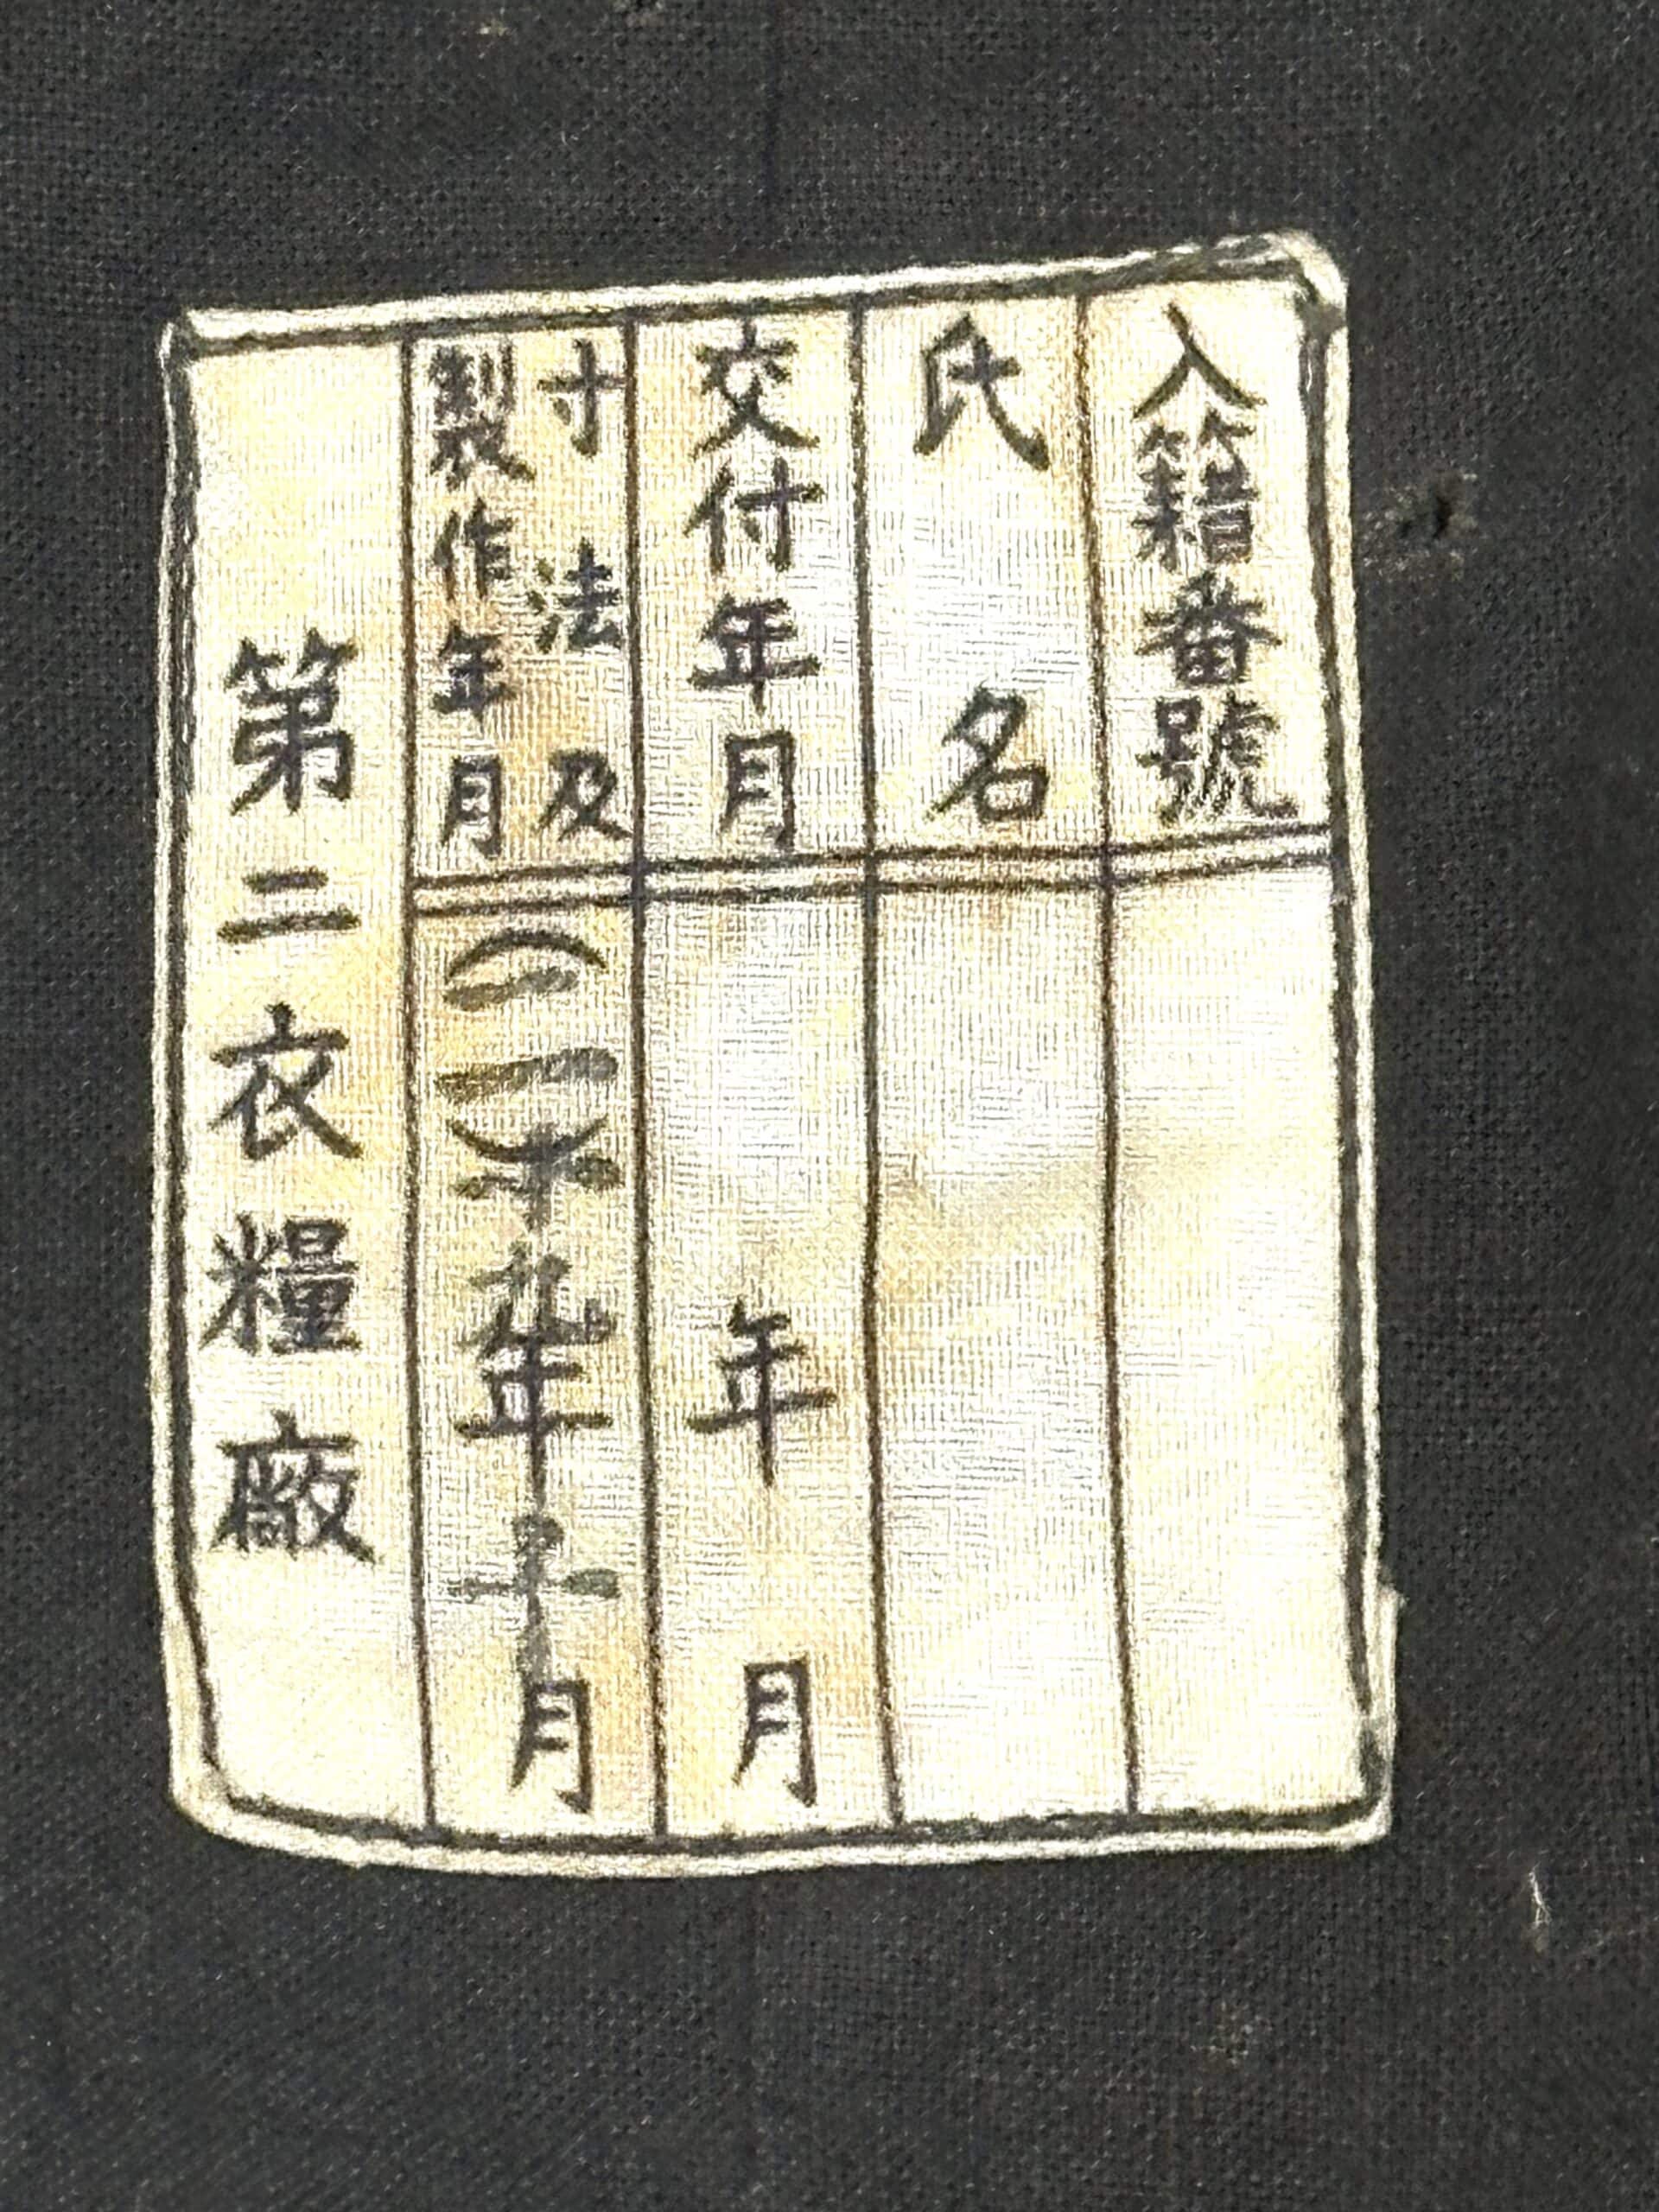 入籍番號
氏名
交付年月
年 月
寸法及
製作年月
(二一)十九年十月
第二衣糧廠